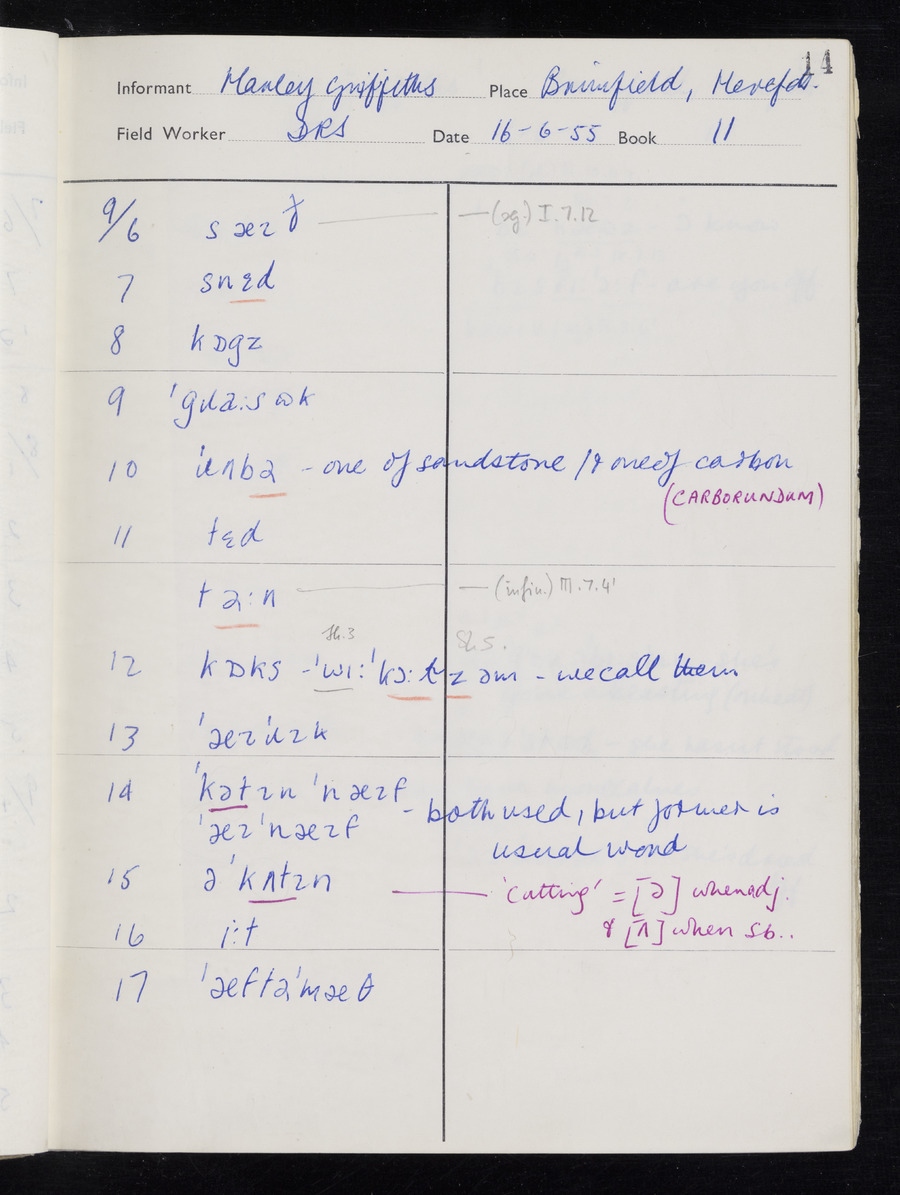 14
Informant Manley Griffiths Place Brimfield, Herefds.
Field Worker DRS Date 16-6-55 Book 11
9/6 sæɪð — (sg.) I.7.12
7 snɛd
8 kɒgz
9 ˈgɹaːsɷk
10 ˈɹʌbə - one of sandstone / & one of carbon
(CARBORUNDUM)
11 tɛd
təːn — (infin.) III.7.4'
Sh.3 Sh.5.
12 kɒks - ˈwɪːˈkɔːz əm - we call them
13 ˈæɪˈɹɪk
14 ˈkətɪn ˈnæɪf
ˈæɪˈnæɪf - both used, but former is
usual word
15 ə ˈkʌtɪn — 'cutting' = [ə] when adj.
& [ʌ] when sb..
16 iːt
17 ˈæftəˈmæθ